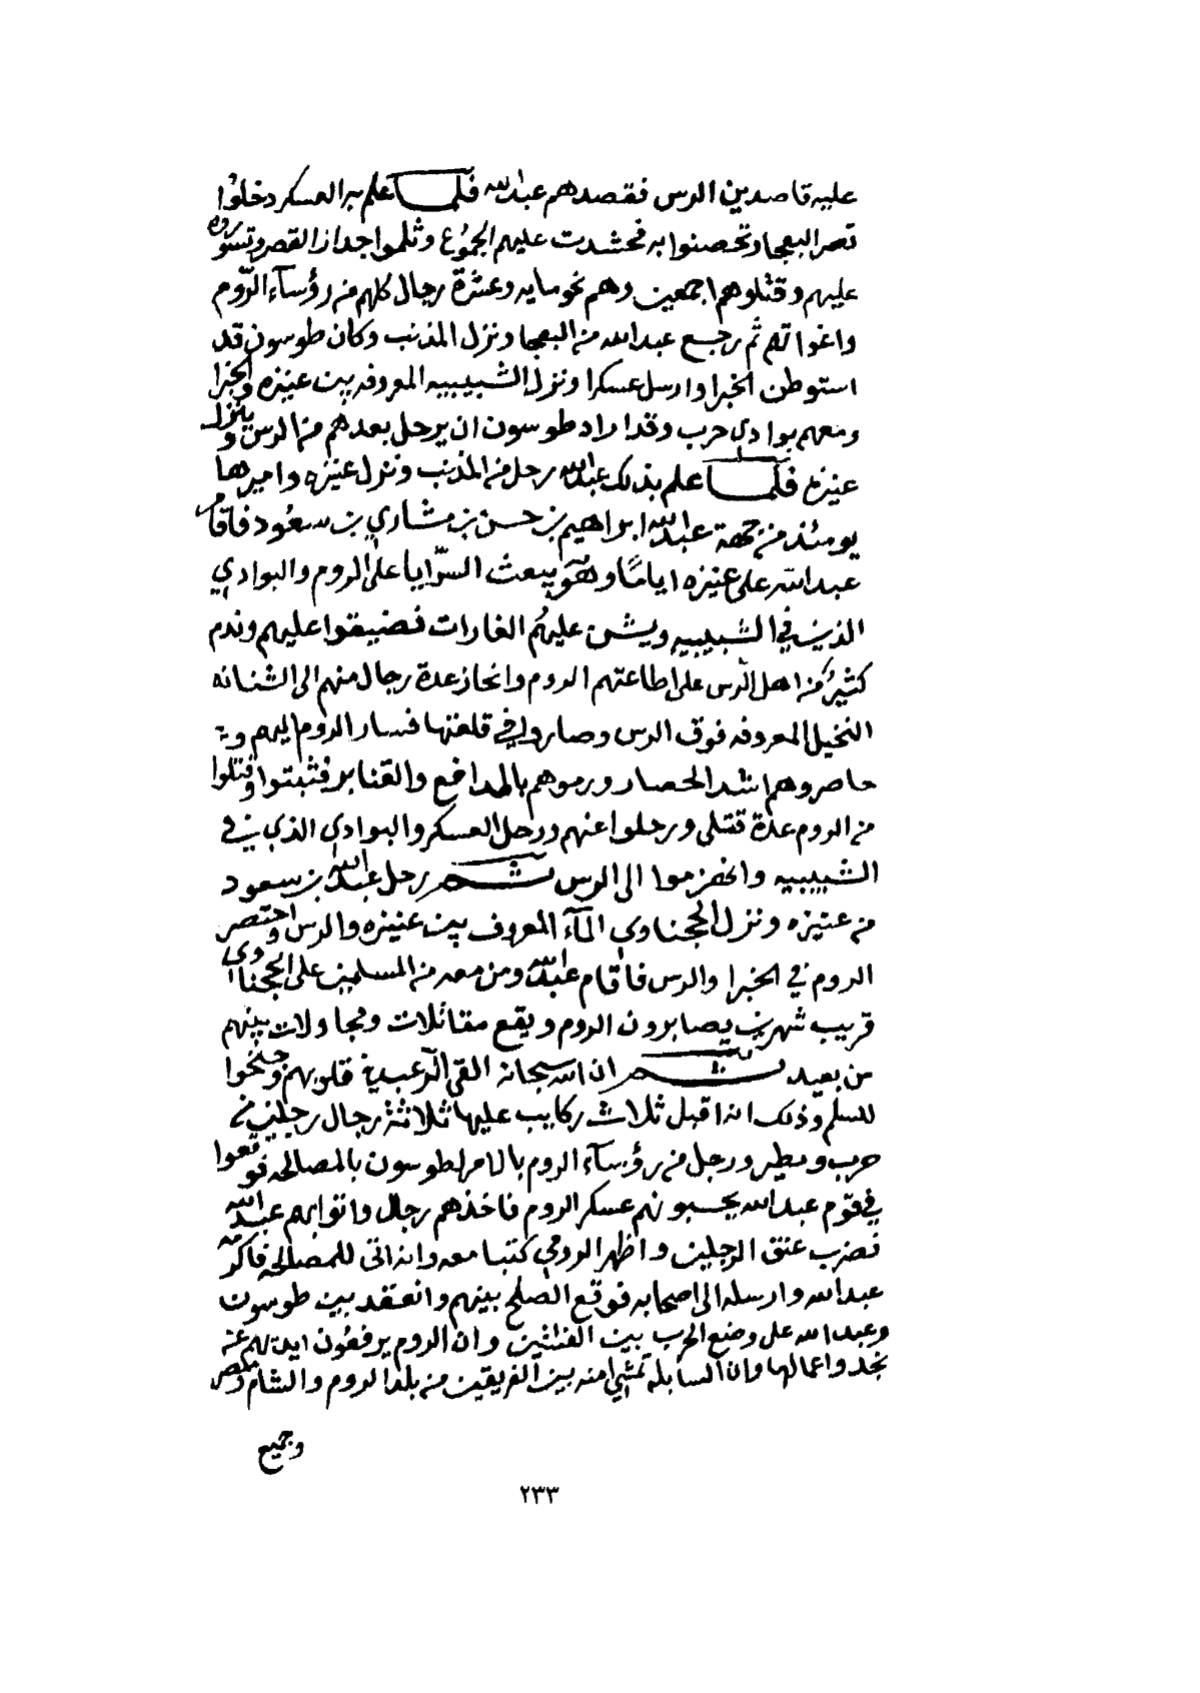 عليه قاصدين الرس فقصدهم عبدالله فلما علم به العسكر دخلوا
قصر البعجا وتحصنوا به فحشدت عليهم الجموع وثلموا جدار القصر وتسوروه
عليهم وقتلوهم اجمعين وهم نحو مايه وعشرة رجال كلهم من رؤسآء الروم
واغواتهم ثم رجع عبدالله من البعجا ونزل المذنب وكان طوسون قد
استوطن الخبرا وارسل عسكرا ونزل الشبيبيه المعروفه بين عنيزه والخبرا
ومعهم بوادي حرب وقد اراد طوسون ان يرحل بعدهم من الرس وينزل
عنيزه فلما علم بذلك عبدالله رحل من المذنب ونزل عنيزه واميرها
يومئذ من جهة عبدالله ابراهيم بن حسن بن مشاري بن سعود فاقام
عبدالله على عنيزه اياما وهو يبعث السرايا على الروم والبوادي
الذين في الشبيبيه ويشن عليهم الغارات فضيقوا عليهم وندم
كثير من اهل الرس على اطاعتهم الروم وانحاز عدة رجال منهم الى الشنانه
النخيل المعروفه فوق الرس وصاروا في قلعتها فسار الروم اليهم و
حاصروهم اشد الحصار ورموهم بالمدافع والقنابر فثبتوا وقتلوا
من الروم عدة قتلى ورحلوا عنهم ورحل العسكر والبوادي الذين في
الشبيبيه وانهزموا الى الرس ثم رحل عبدالله بن سعود
من عنيزه ونزل الحجناوي المآء المعروف بين عنيزه والرس واحتصر
الروم في الخبرا والرس فاقام عبدالله ومن معه من المسلمين على الحجناوي
قريب شهرين يصابرون الروم ويقع مقاتلات ومجاولات بينهم
من بعيد ثم ان الله سبحانه القى الرعب في قلوبهم وجنحوا
للسلم وذلك انه اقبل ثلاث ركايب عليها ثلاثة رجال رجلين من
حرب ومطير ورجل من رؤسآء الروم بالامر لطوسون بالمصالحه فوقعوا
في قوم عبدالله يحسبونهم عسكر الروم فاخذهم رجال واتوا بهم عبدالله
فضرب عنق الرجلين واظهر الرومي كتبا معه وانه اتى للمصالحه فاكرمه
عبدالله وارسله الى اصحابه فوقع الصلح بينهم وانعقد بين طوسون
وعبدالله على وضع الحرب بين الفئتين وان الروم يرفعون ايديهم عن
نجد واعمالها وان السابله تمشي امنه بين الفريقين من بلد الروم والشام ومصر
وجميع
٢٣٣